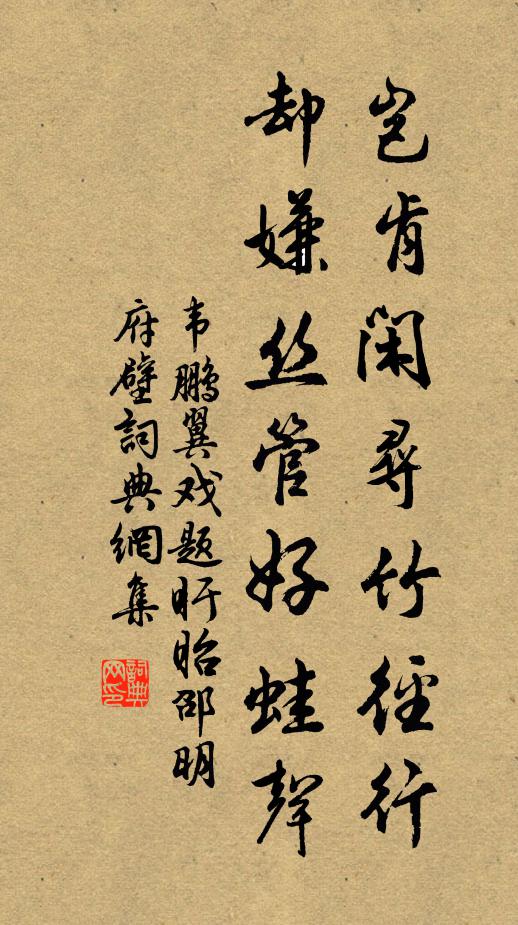 岂肯闲寻竹径行
却嫌丝管好蛙声
韦鹏翼戏题盱眙邵明
府壁詞典網集
詞典网印